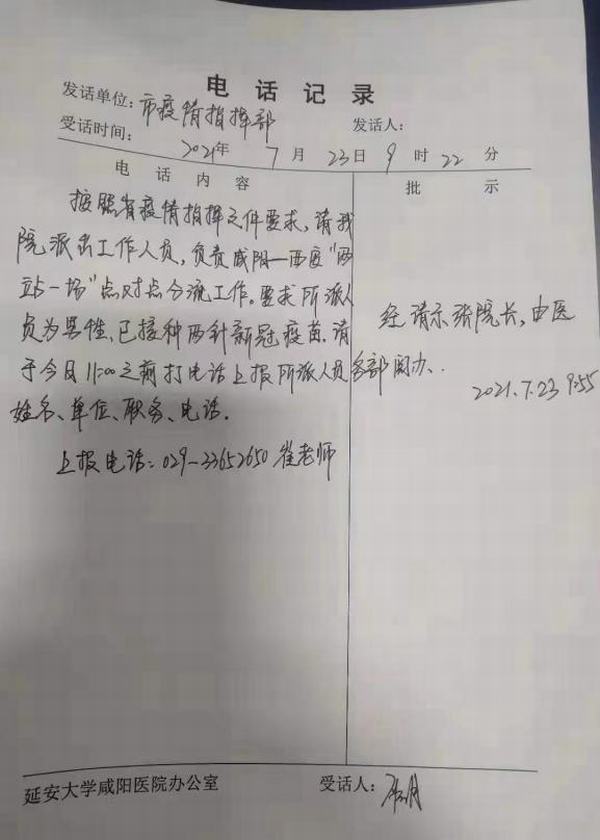 电话记录
发话单位：市疫情指挥部 发话人：
受话时间： 2021年 7月 23日 9时 22分
电话内容
批示
按照省疫情指挥文件要求，请我
院派出工作人员，负责咸阳—西安“两
站一场”点对点分流工作。要求所派人
员为男性，已接种两针新冠疫苗。请
于今日11:00之前打电话上报所派人员
姓名、单位、职务、电话。
上报电话：029-33652650 崔老师
经请示张院长，由医
务部阅办.
2021.7.23 9:55
延安大学咸阳医院办公室
受话人：